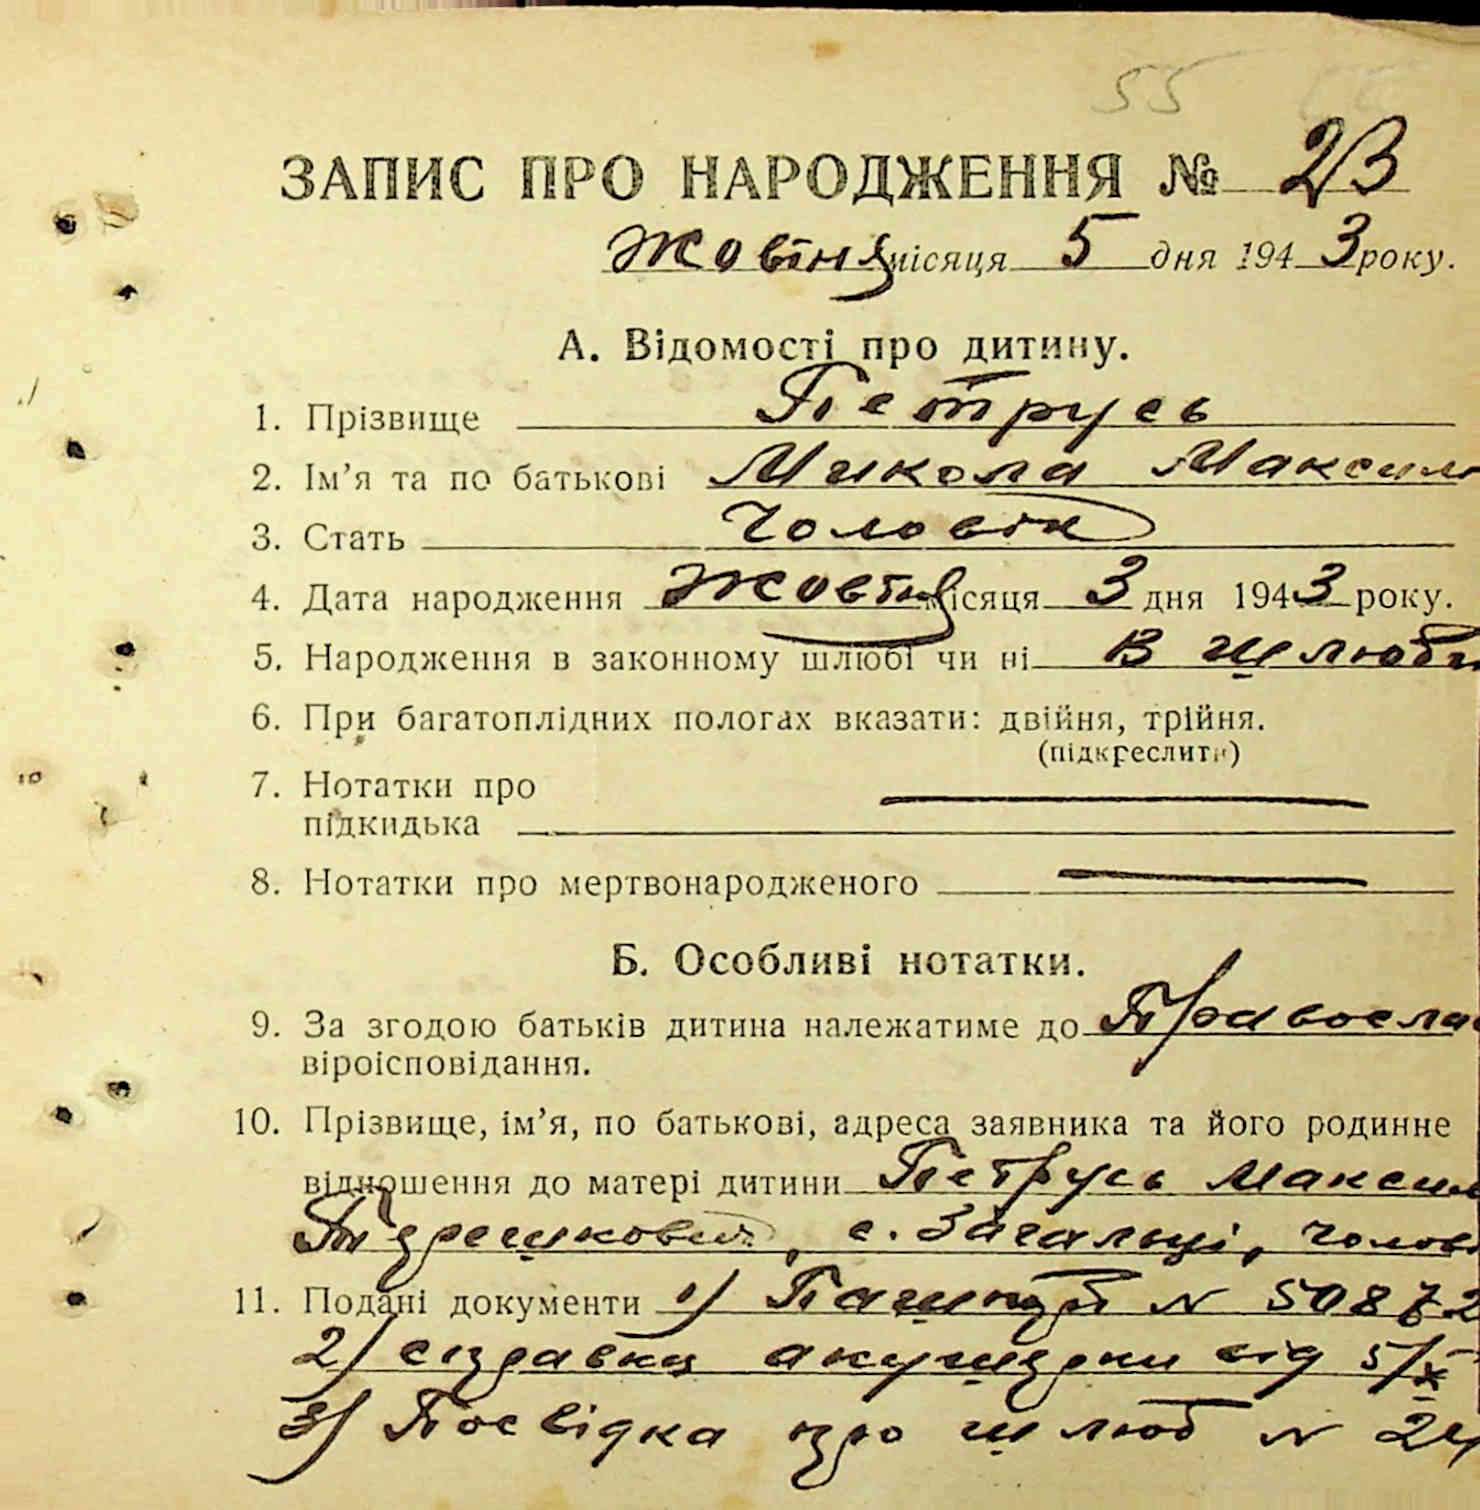 55
ЗАПИС ПРО НАРОДЖЕННЯ № 23
Жовтня місяця 5 дня 1943 року.
А. Відомості про дитину.
1. Прізвище Петрусь
2. Ім'я та по батькові Микола Максим
3. Стать Чоловік
4. Дата народження Жовтня місяця 3 дня 1943 року.
5. Народження в законному шлюбі чи ні В шлюбі
6. При багатоплідних пологах вказати: двійня, трійня.
(підкреслити)
7. Нотатки про
підкидька
8. Нотатки про мертвонародженого
Б. Особливі нотатки.
9. За згодою батьків дитина належатиме до Правосла
віроісповідання.
10. Прізвище, ім'я, по батькові, адреса заявника та його родинне
відношення до матері дитини Петрусь Максим
с. Загальці, чолові
11. Подані документи 1) Пашпорт N 50872
2) справка акушерки від 5/X
3) Посвідка про шлюб N 24